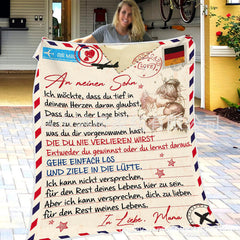 An meinen Sohn
Ich möchte, dass du tief in
deinem Herzen daran glaubst,
Dass du in der Lage bist,
alles zu erreichen,
was du dir vorgenommen hast.
DIE DU NIE VERLIEREN WIRST.
Entweder du gewinnst oder du lernst daraus.
GEHE EINFACH LOS
UND ZIELE IN DIE LÜFTE.
Ich kann nicht versprechen,
für den Rest deines Lebens hier zu sein.
Aber ich kann versprechen, dich zu lieben
für den Rest meines Lebens.
In Liebe, Mama